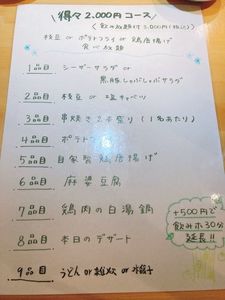 得々2,000円コース
(飲み放題付3,000円(税込))
枝豆 or ポテトフライ or 鶏唐揚げ
食べ放題
1品目 シーザーサラダ or
黒豚しゃぶしゃぶサラダ
2品目 枝豆 or 塩キャベツ
3品目 串焼き2本盛り(1名あたり)
4品目 ポテト
5品目 自家製鶏唐揚げ
6品目 麻婆豆腐
7品目 鶏肉の白湯鍋
8品目 本日のデザート
9品目 うどん or 雑炊 or
+500円で
飲みホ30分
延長!!